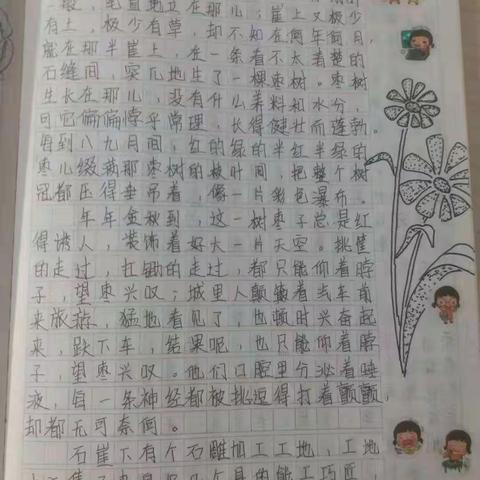 般，笔直地立在那儿；崖上又极少
有土，极少有草，却不知在何年何月，
就在那半崖上，在一条看不太着楚的
石缝间，突兀地生了一棵枣树。枣树
生长在那儿，没有什么养料和水分，
可它偏偏悖乎常理，长得健壮而蓬勃。
每到八九月间，红的绿的半红半绿的
枣儿缀满那枣树的枝叶间，把整个树
冠都压得垂吊着，像一片彩色瀑布。
年年金秋到，这一树枣子总是红
得诱人，装饰着好大一片天空。挑筐
的走过，扛锄的走过，都只能仰着脖
子，望枣兴叹；城里人颠簸着当车前
来旅游，猛地看见了，也顿时兴奋起
来，跃下车，结果呢，也只能仰着脖
子，望枣兴叹。他们口腔里分泌着唾
液，每一条神经都被挑逗得打着颤颤，
却都无可奈何。
石崖下有个石雕加工工地，工地
几个
能工巧匠，